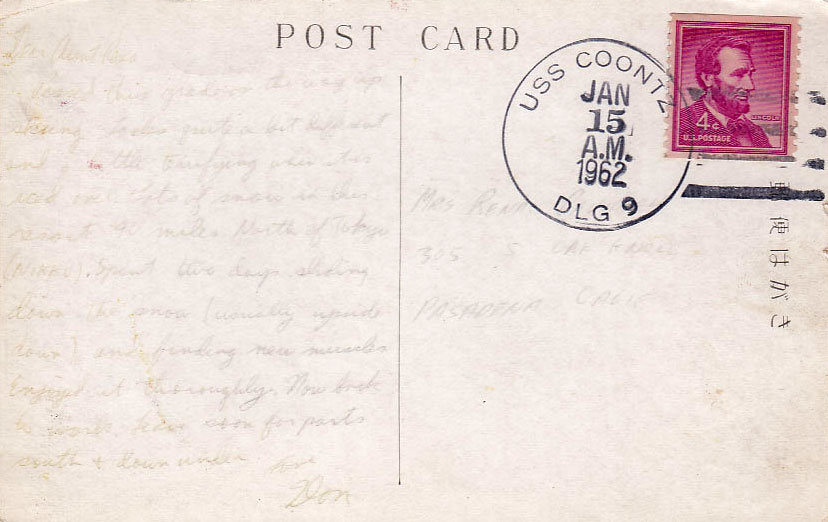 POST CARD
USS COONTZ
JAN
15
A.M.
1962
DLG 9
4¢
LINCOLN
U.S. POSTAGE
便はがき
Dear Aunt
this
skiing looks quite a bit different
and a little terrifying when it is
Lots of snow in this
90 miles North of Tokyo
(NIKKO). Spent two days sliding
down the snow (usually upside
down) and finding new muscles
Enjoyed it thoroughly. Now back
to work. soon for parts
south & down under
Love
Don
MRS
305 S OAK KNOLL
PASADENA CALIF